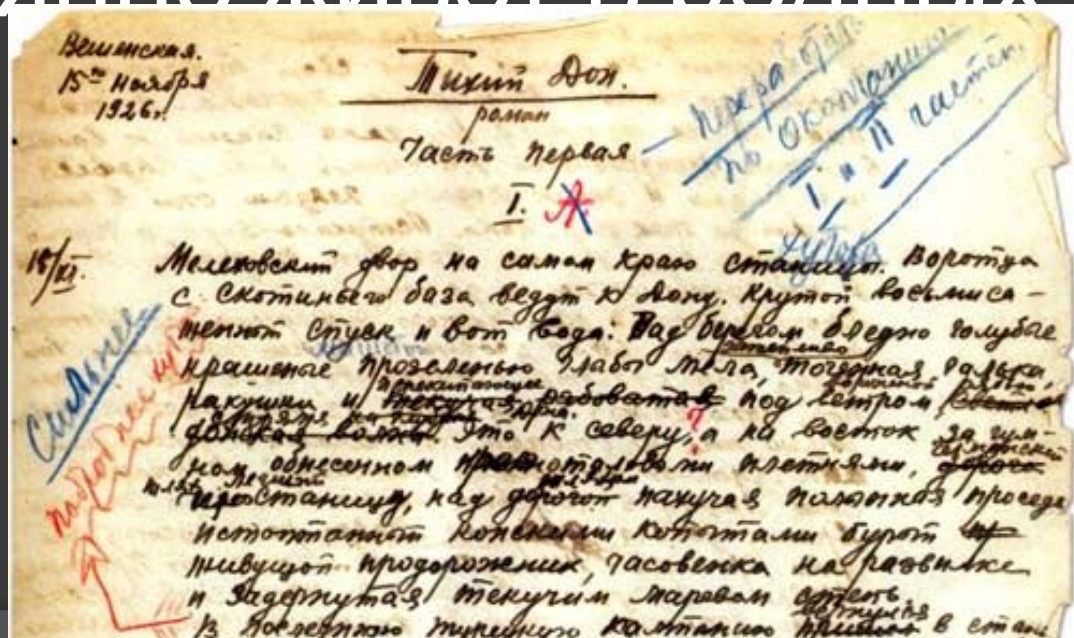 Вешенская.
15го Ноября
1926г.
Тихий Дон.
роман
Часть первая
I. А
— перераб
по окончании
I и II частей.
хутора
15/XI.
Мелеховский двор на самом краю станицы. Воротца
с скотиньего база ведут к Дону. Крутой восьмиса-
женный спуск и вот вода: Над берегом бледно голубые
крашеные прозеленью глабы мела, точенная галька,
ракушки и перекипающее под ветром
донская волна. Это к северу, ? а на восток за гум-
ном, обнесенном плетнями,
станицу, над дорогой пахучая полынная проседь
истоптанный конскими копытами бурый
живущой придорожник, часовенка на развилке
и задернутая текучим маревом степь.
В последнюю турецкую кампанию в стан
Сильнее
подробнее